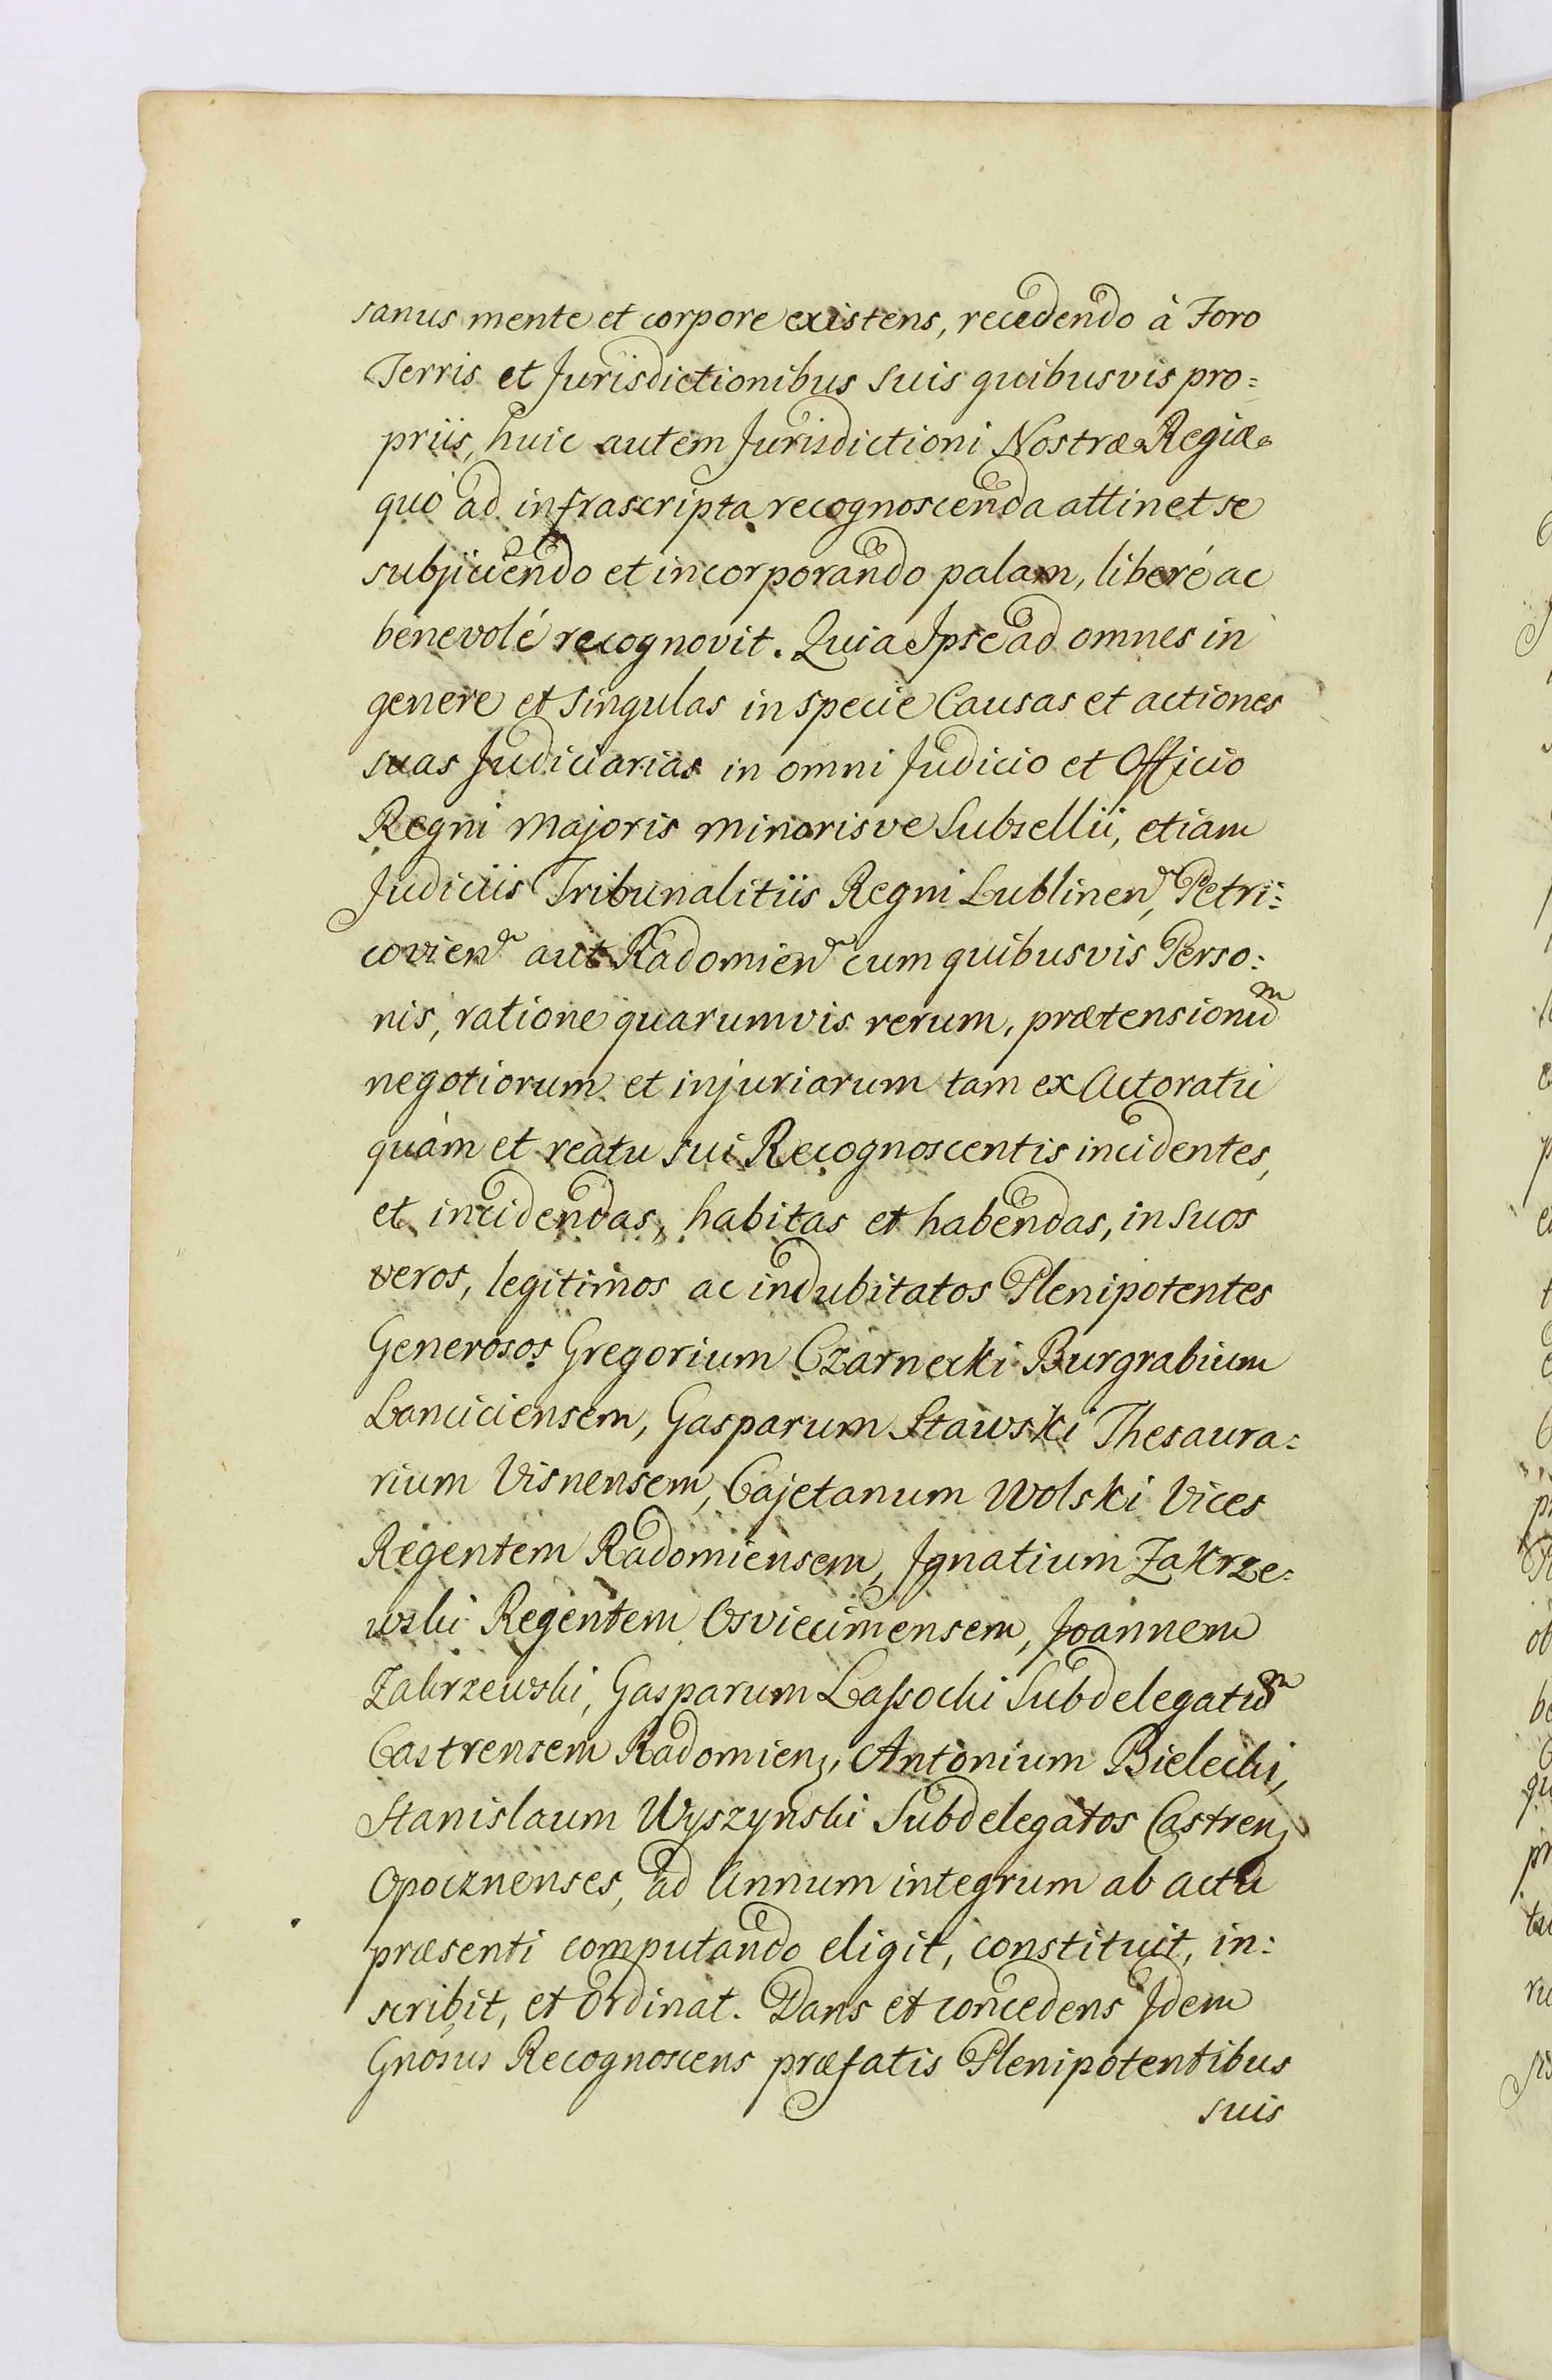 sanus mente et corpore existens, recedendo à Foro
Terris et Jurisdictionibus suis quibusvis pro=
priis, huic autem Jurisdictioni Nostræ Regiæ
quò ad infrascripta recognoscenda attinet se
subjiciendo et incorporando palam, liberé ac
benevolé recognovit. Quia Ipse ad omnes in
genere et singulas in specie Causas et actiones
suas Judiciarias in omni Judicio et Officio
Regni Majoris minorisve Subsellii, etiam
Judiciis Tribunalitiis Regni Lublinen, Petri=
covien aut Radomien cum quibusvis Perso=
nis, ratione quarumvis rerum, prætensionum
negotiorum et injuriarum tam ex Actoratu
quàm et reatu sui Recognoscentis incidentes,
et incidendas, habitas et habendas, in Suos
veros, legitimos ac indubitatos Plenipotentes
Generosos Gregorium Czarnecki Burgrabium
Lanciciensem, Gasparum Stawski Thesaura=
rium Visnensem, Cajetanum Wolski Vices
Regentem Radomiensem, Ignatium Zakrze=
wski Regentem Osviecimensem, Joannem
Zakrzewski, Gasparum Lassocki Subdelegatum
Castrensem Radomien, Antonium Bielecki,
Stanislaum Wyszynski Subdelegatos Castren
Opocznenses, ad Annum integrum ab actu
præsenti computando eligit, constituit, in=
scribit, et ordinat. Dans et concedens Idem
Gnosus Recognoscens præfatis Plenipotentibus
suis